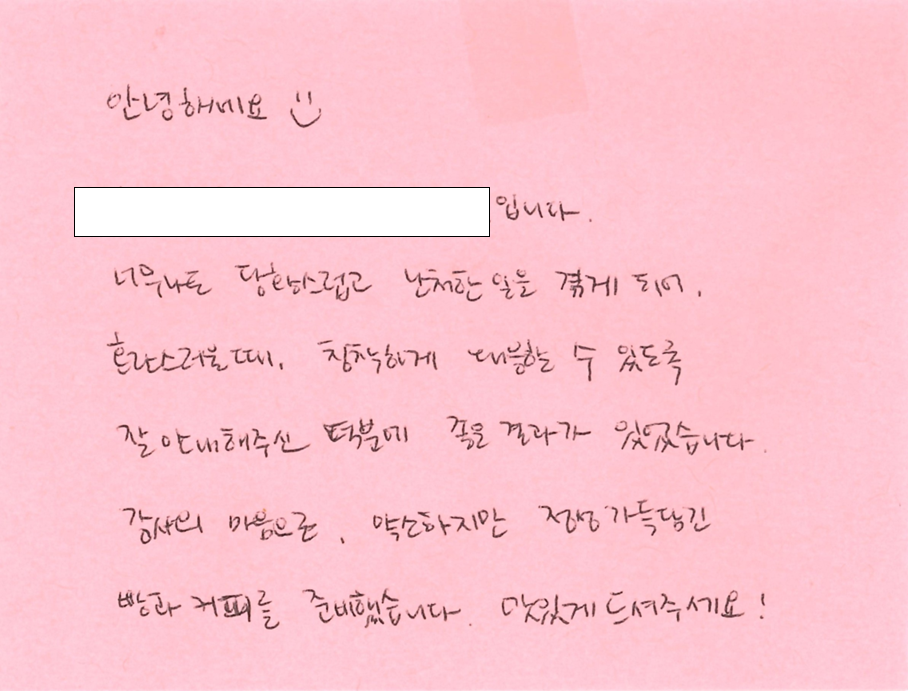 안녕하세요
입니다.
너무나도 당황스럽고 난처한 일을 겪게 되어,
혼란스러울때, 침착하게 대응할 수 있도록
잘 안내해주신 덕분에 좋은 결과가 있었습니다.
감사의 마음으로, 약소하지만 정성가득담긴
빵과 커피를 준비했습니다. 맛있게 드셔주세요!